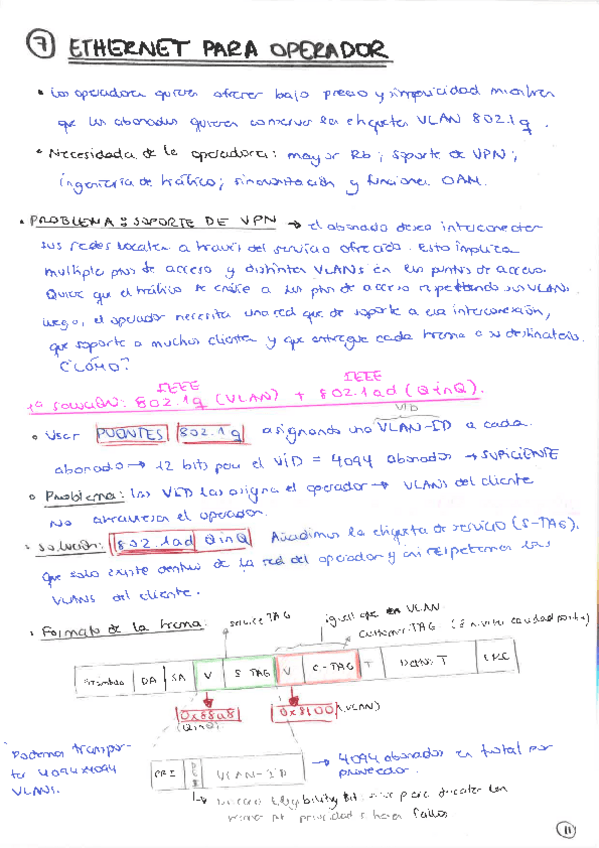 7 ETHERNET PARA OPERADOR
• Los operadores quieren ofrecer bajo precio y simplicidad mientras
que los abonados quieren conservar las etiquetas VLAN 802.1q.
• Necesidades de la operadora: mayor Rb; soporte de VPN;
ingeniería de tráfico; sincronización y funciones OAM.
• PROBLEMA: SOPORTE DE VPN → el abonado desea interconectar
sus redes locales a través del servicio ofrecido. Esto implica
multiples ptos de acceso y distintas VLANs en los puntos de acceso.
Quiere que el tráfico se envíe a los ptos de acceso respetando sus VLANs
luego, el operador necesita una red que de soporte a esa interconexión,
que soporte a muchos clientes y que entregue cada trama a su destinatario.
¿CÓMO?
IEEE IEEE
1ª SOLUCIÓN: 802.1q (VLAN) + 802.1ad (QinQ).
VID
• Usar PUENTES 802.1q asignando una VLAN-ID a cada
abonado → 12 bits para el VID = 4094 abonados → SUFICIENTE
• Problema: las VID las asigna el operador → VLANs del cliente
NO atraviesan el operador.
• Solución: 802.1ad QinQ Añadimos la etiqueta de servicio (S-TAG).
que solo existe dentro de la red del operador y así respetamos las
VLANs del cliente.
• Formato de la trama: service TAG igual que en VLAN
customer TAG
DA SA V S TAG V C-TAG T CRC
0x88a8 0x8100 (VLAN)
(QinQ)
Podemos transpor-
tar 4094x4094
VLANs.
PRI VLAN-ID → 4094 abonados en total por
proveedor.
Eligibility Bit
11